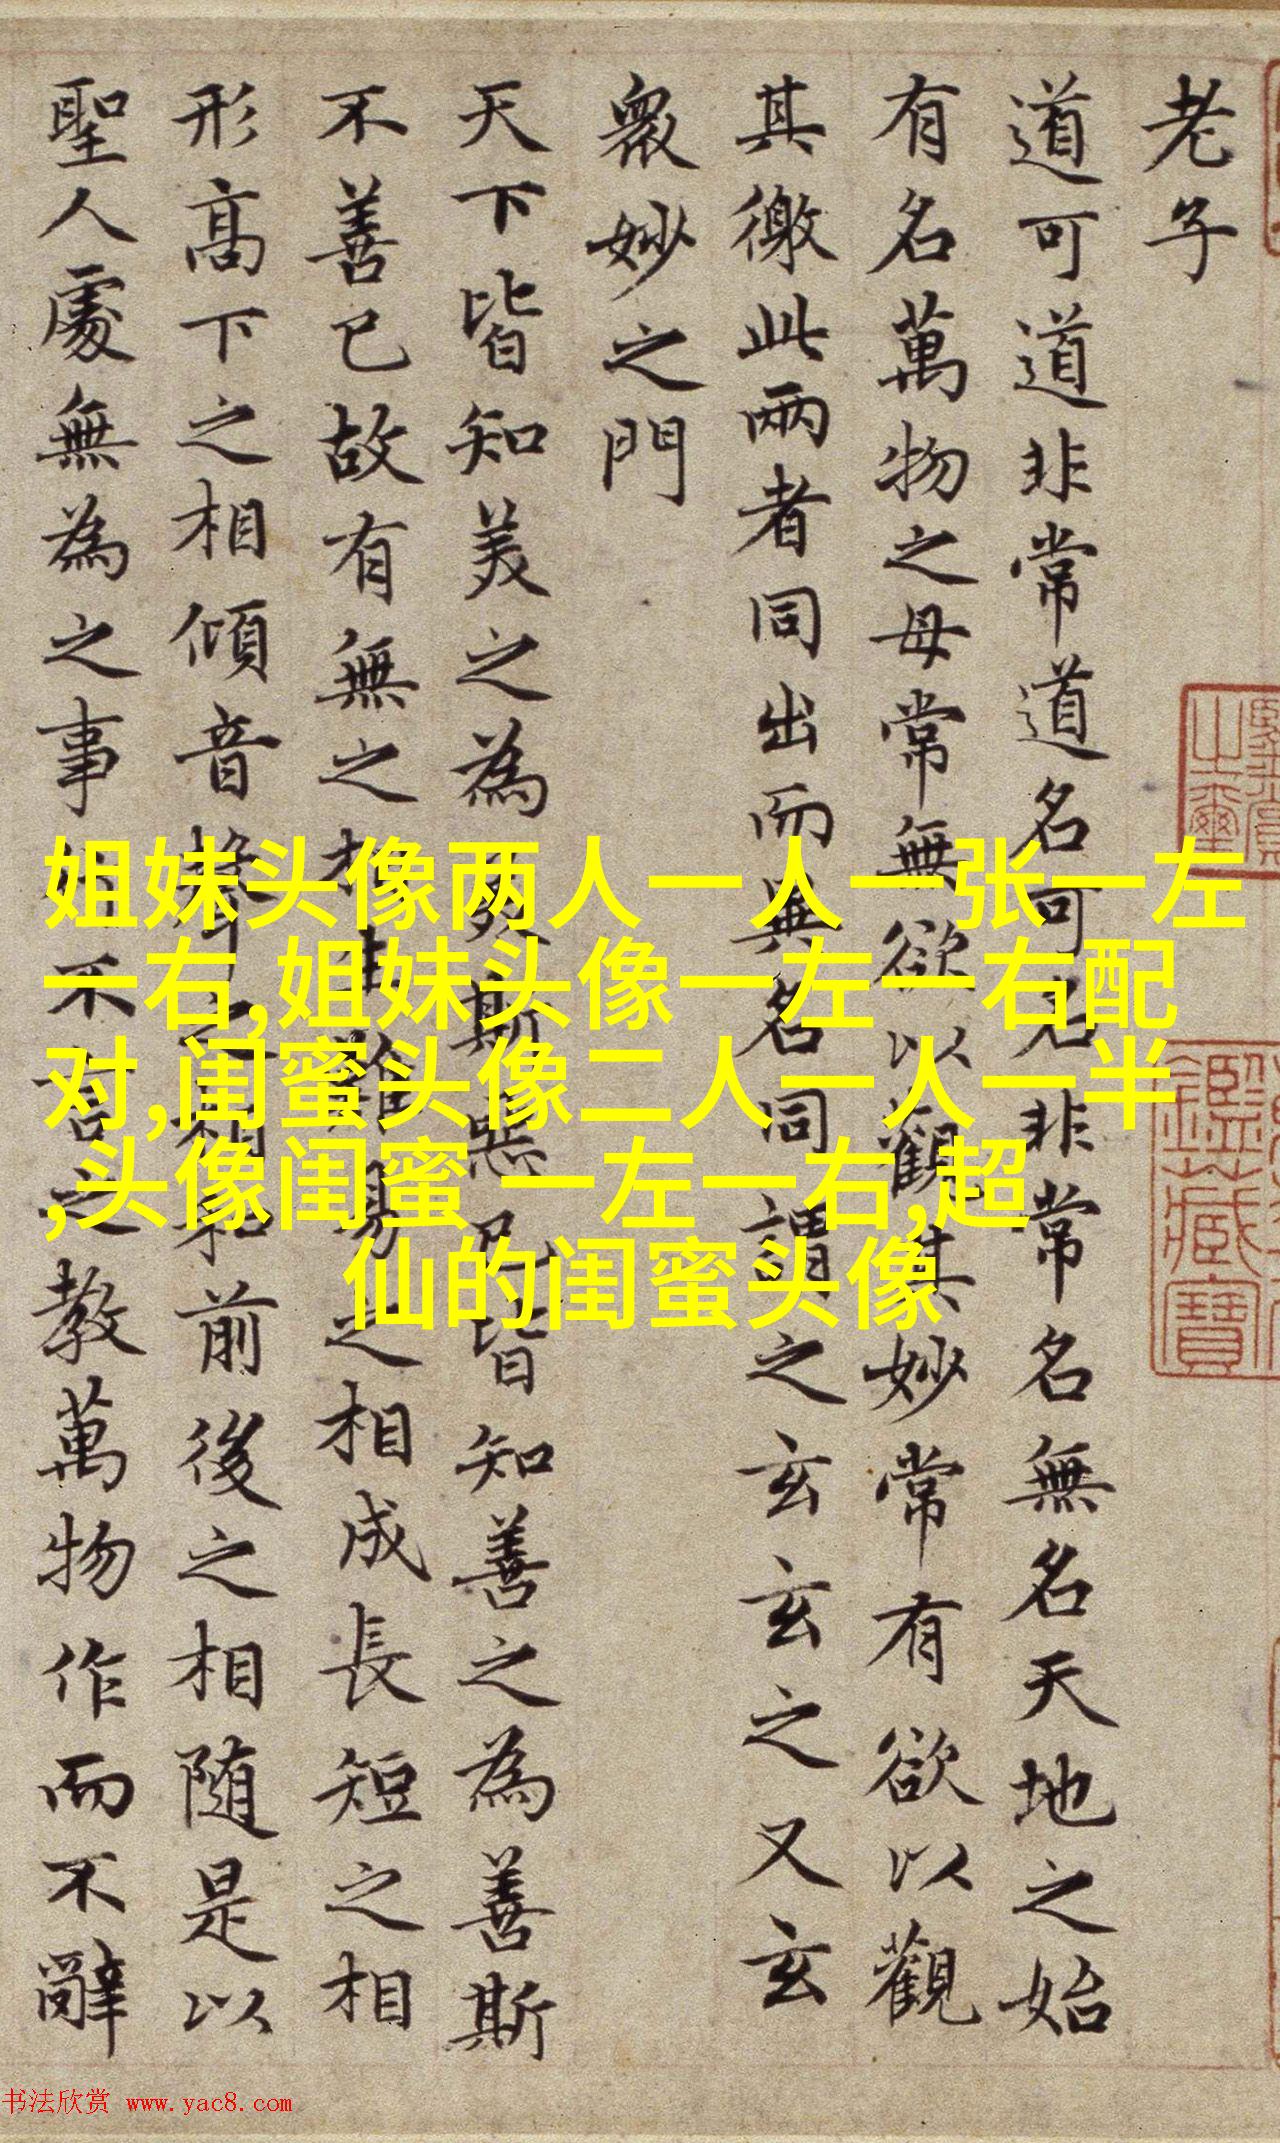 老子
道可道非常道名可名非常名無名天地之始
有名萬物之母常無欲以觀其妙常有欲以觀
其徼此兩者同出而異名同謂之玄玄之又玄
衆妙之門
天下皆知美之為美斯惡已皆知善之為善斯
不善已故有無之相生難易之相成長短之相
形高下之相傾音聲之相和前後之相随是以
聖人處無為之事行不言之教萬物作而不辭
姐妹头像两人一人一张一左
一右,姐妹头像一左一右配
对,闺蜜头像二人一人一半
,头像闺蜜 一左一右,超
仙的闺蜜头像
鑑藏寶
书法欣赏 www.yac8.com